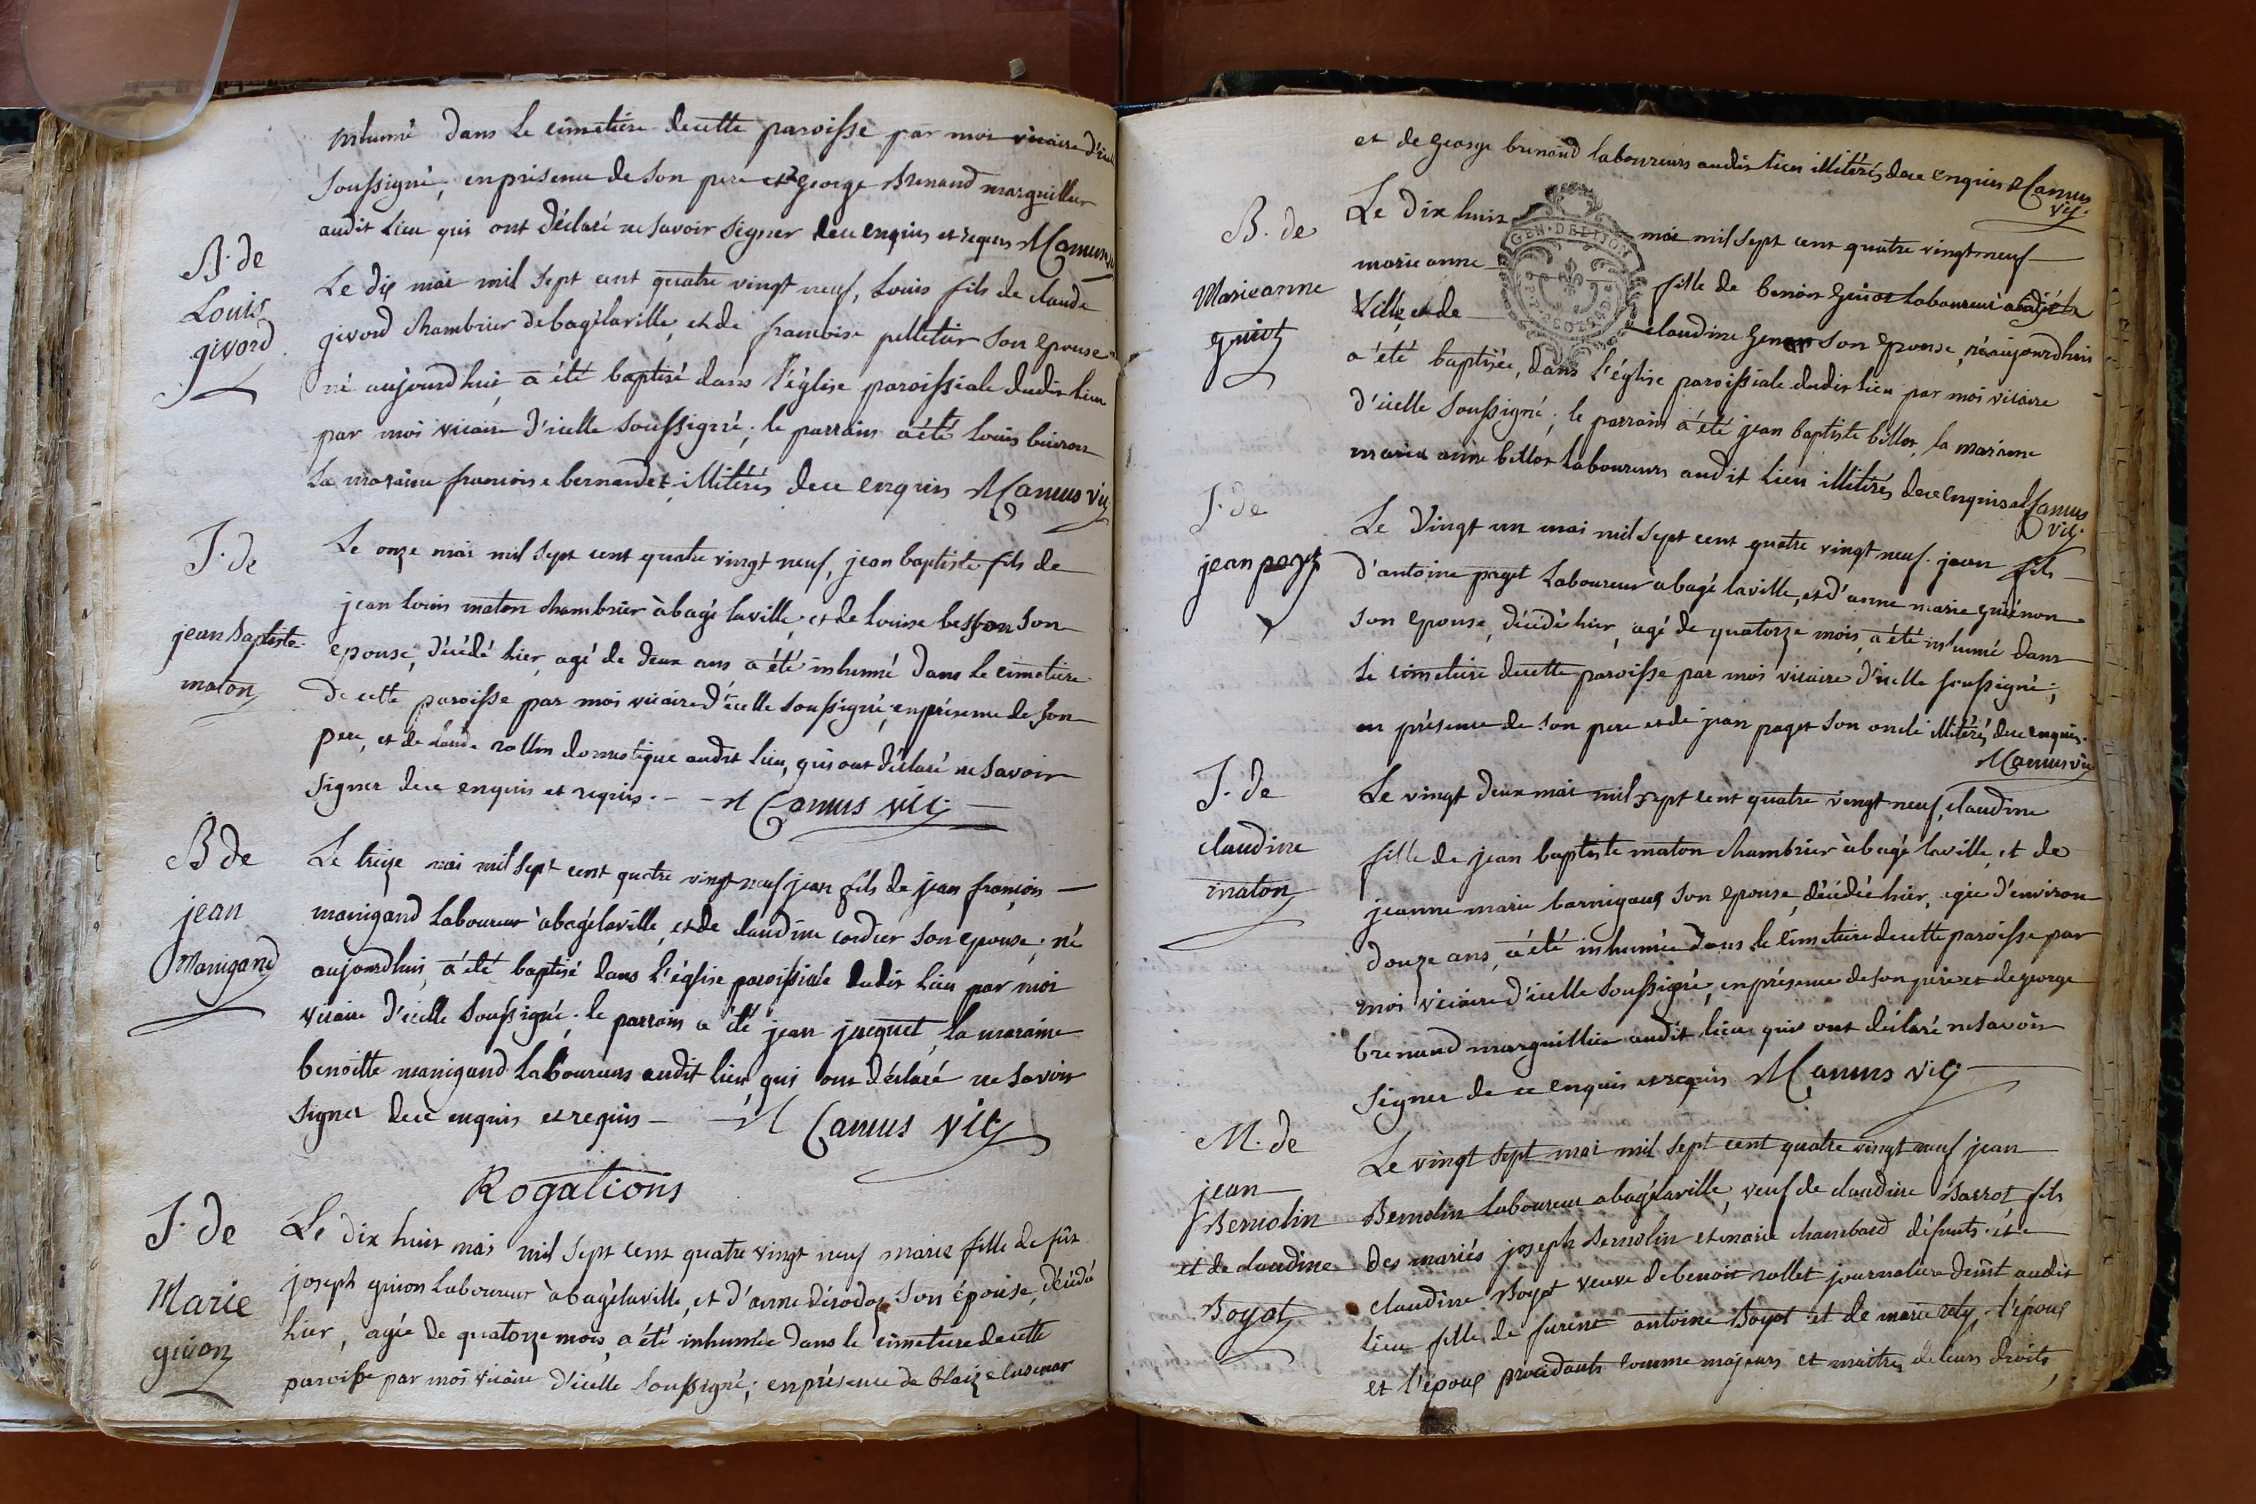 inhumé dans le cimetiere de cette paroisse par moi vicaire d'icelle
soussigné, en présence de son pere et george Brenaud marguillier
audit lieu qui ont déclaré ne savoir signer de ce enquis et requis M Camus
B. de
Louis
givord
Le dix mai mil sept cent quatre vingt neuf, Louis fils de claude
givord chambrier de bagélaville, et de francoise pelletier son epouse
né aujourdhui, a été baptisé dans l'église paroissiale dudit lieu
par moi vicaire d'icelle soussigné; le parrain a été Louis buiron
La maraine francoise bernardet illitérés de ce enquis M Camus vic
J. de
jean baptiste
maton
Le onze mai mil sept cent quatre vingt neuf, jean baptiste fils de
jean louis maton chambrier à bagé laville, et de louise besson son
epouse, décédé hier, agé de deux ans a été inhumé dans le cimetiere
de cette paroisse par moi vicaire d'icelle soussigné, en présence de son
pere, et de claude rollin domestique audit lieu, qui ont déclaré ne savoir
signer de ce enquis et requis. M Camus vic
B de
jean
Manigand
Le treize mai mil sept cent quatre vingt neuf jean fils de jean françois
manigand laboureur à bagélaville, et de claudine cordier son epouse, né
aujourdhui, a été baptisé dans l'église paroissiale dudit lieu par moi
vicaire d'icelle soussigné. le parrain a été jean jacquet, la maraine
benoitte manigand laboureurs audit lieu, qui ont déclaré ne savoir
signer de ce enquis et requis M Camus vic
Rogations
J. de
Marie
guion
Le dix huit mai mil sept cent quatre vingt neuf marie fille de fût
joseph guion laboureur à bagélaville, et d'anne son épouse, décédé
hier, agée de quatorze mois, a été inhumée dans le cimetiere de cette
paroisse par moi vicaire d'icelle soussigné; en présence de blaize
et de george brenaud laboureurs audit lieu illitérés de ce enquis M Camus
vic.
B. de
Marieanne
guiot
Le dix huit mai mil sept cent quatre vingt neuf
GEN. DE DIJON
marie anne fille de benoit guiot laboureur à bagé la
Ville, et de claudine son epouse, né aujourdhui
a été baptisée, dans l'église paroissiale dudit lieu par moi vicaire
d'icelle soussigné; le parrain a été jean baptiste billot, la maraine
maria anne billot laboureurs audit lieu illitérés de ce enquis M Camus
vic.
J. de
jean paget
Le vingt un mai mil sept cent quatre vingt neuf. jean fils
d'antoine paget laboureur à bagé laville, et d'anne marie guénon
son epouse, décédé hier, agé de quatorze mois, a été inhumé dans
le cimetiere de cette paroisse par moi vicaire d'icelle soussigné;
en présence de son pere et de jean paget son oncle illitérés de ce enquis.
M Camus vic
J. de
claudine
maton
Le vingt deux mai mil sept cent quatre vingt neuf, claudine
fille de jean baptiste maton chambrier à bagé laville, et de
jeanne marie barnigaux son epouse, décédée hier, agée d'environ
douze ans, a été inhumée dans le cimetiere de cette paroisse par
moi vicaire d'icelle soussigné, en présence de son père et de george
brenaud marguillier audit lieu qui ont déclaré ne savoir
signer de ce enquis et requis M Camus vic
M. de
jean
Bernolin
et de claudine
Boyat
Le vingt sept mai mil sept cent quatre vingt neuf jean
Bernolin laboureur à bagélaville, veuf de claudine Barrot fils
des mariés joseph Bernolin et marie chambard défunts et
claudine Boyat veuve de benoit rollet journaliere demt audit
lieu fille de furent antoine Boyat et de marie rely, l'époux
et l'épouse procédants comme majeurs et maitres de leurs droits,